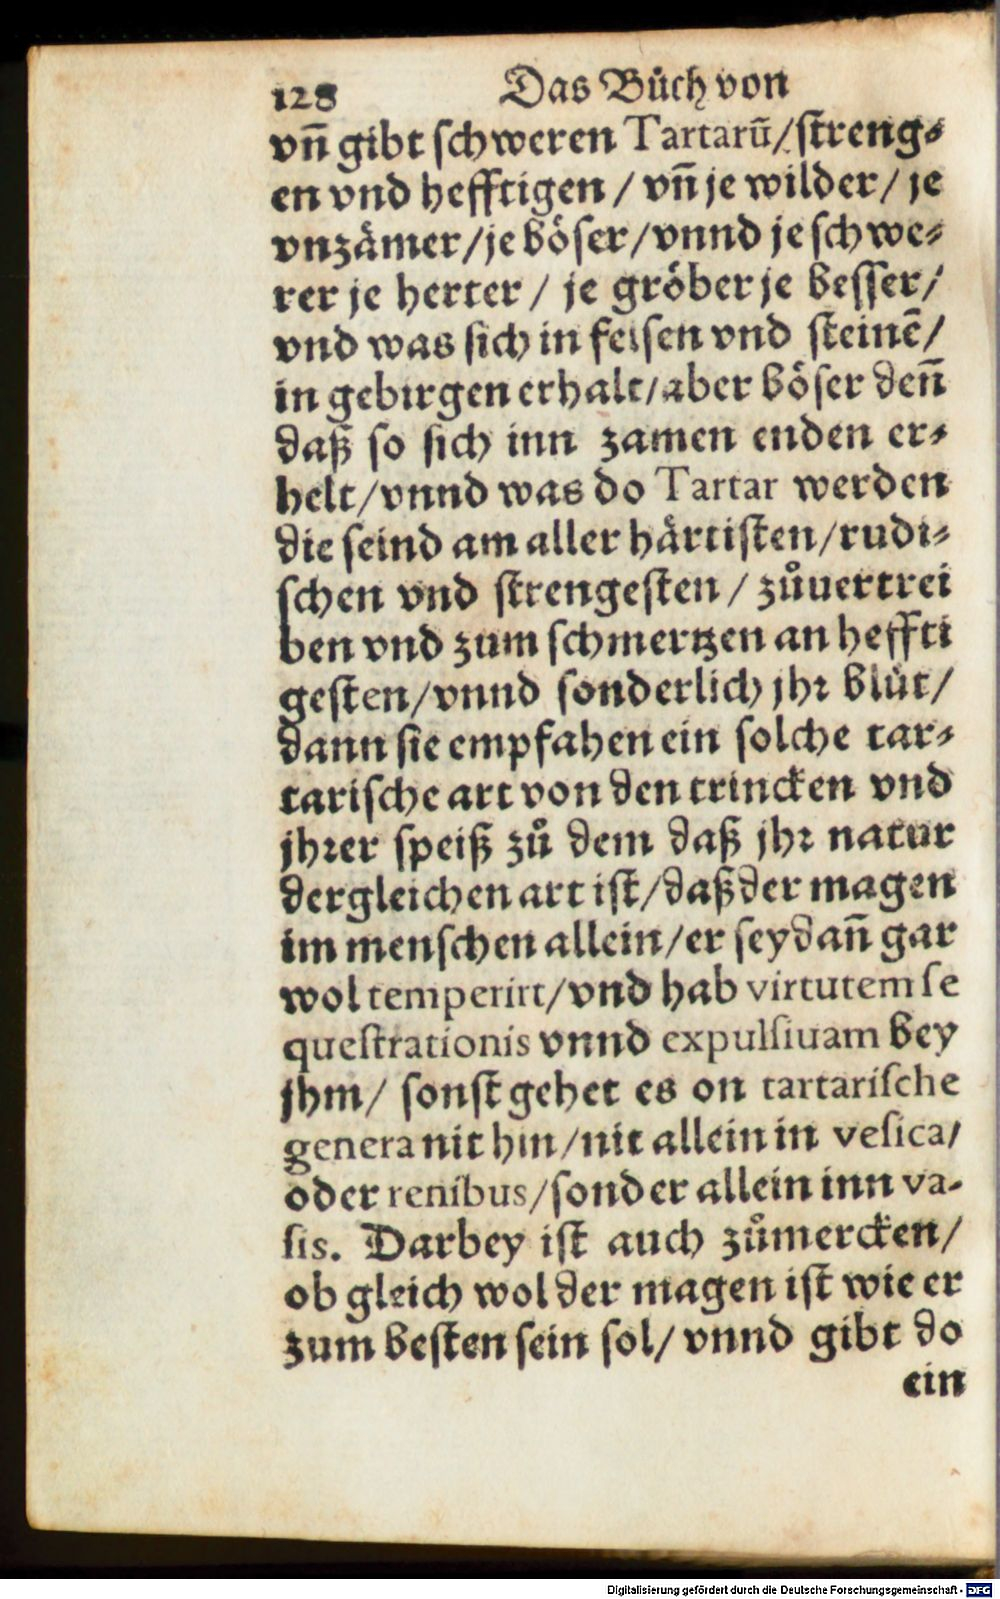 128 Das Bůch von
vñ gibt schweren Tartarū/streng⸗
en vnd hefftigen / vñ je wilder/ je
vnzämer/je böser/vnnd je schwe⸗
rer je herter / je gröber je besser/
vnd was sich in felsen vnd steinē/
in gebirgen erhalt/aber böser deñ
daß so sich inn zamen enden er⸗
helt/vnnd was do Tartar werden
die seind am aller härtisten/rudi⸗
schen vnd strengesten / zůuertrei
ben vnd zum schmertzen an heffti
gesten/vnnd sonderlich jhr blůt/
dann sie empfahen ein solche tar⸗
tarische art von den trincken vnd
jhrer speiß zů dem daß jhr natur
dergleichen art ist/daß der magen
im menschen allein/er sey dañ gar
wol temperirt/vnd hab virtutem se
questrationis vnnd expulsiuam bey
jhm/ sonst gehet es on tartarische
genera nit hin/nit allein in vesica/
oder renibus/sonder allein inn va-
sis. Darbey ist auch zůmercken/
ob gleich wol der magen ist wie er
zum besten sein sol/ vnnd gibt do
ein
Digitalisierung gefördert durch die Deutsche Forschungsgemeinschaft - DFG